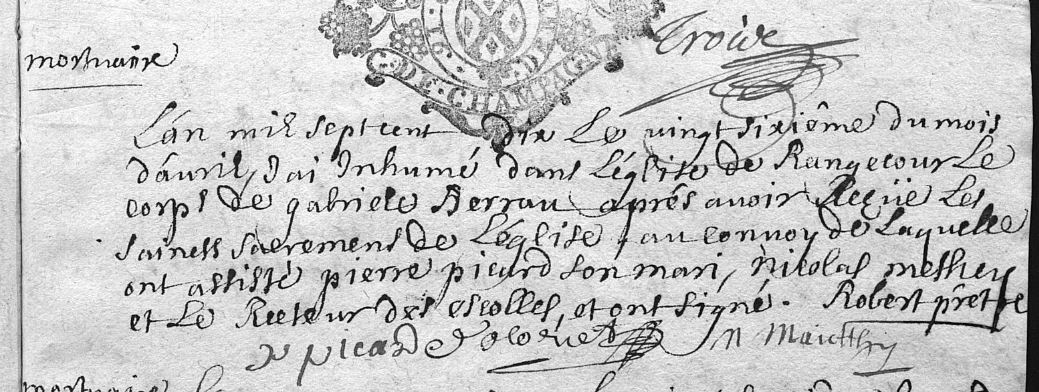 C·DE·CHAMPAGN
mortuaire
L'an mil sept cent dix Le vingt sixième du mois
d'avril, J'ai Inhumé dans L'église de Rangecour Le
corps de gabriele Berrau après avoir Reçüe Les
saincts sacremens de L'église, au convoy de Laquelle
ont assisté pierre picard son mari, Nicolas
et Le Recteur des escolles, et ont signé. Robert prêttre
p picard N
mortuaire